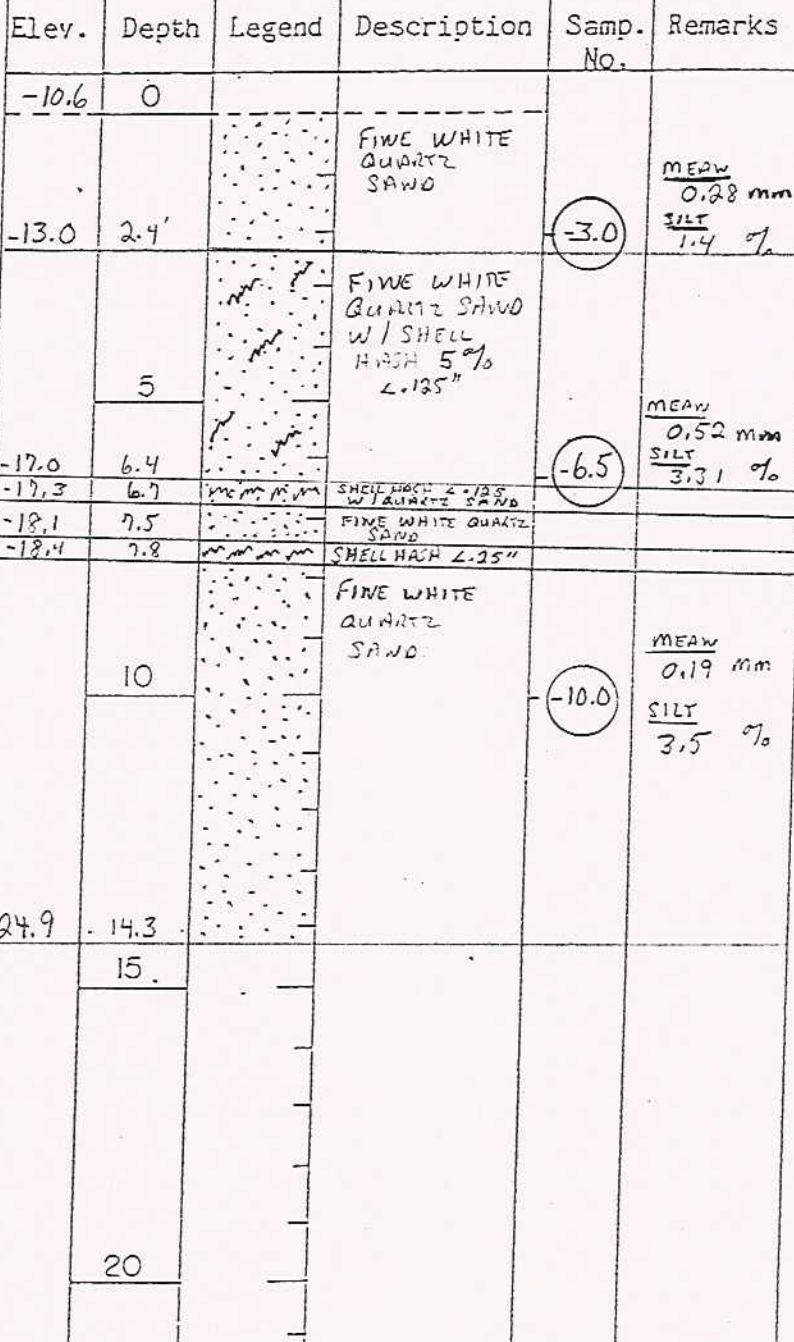 Elev. Depth Legend Description Samp. No. Remarks
-10.6 0
FINE WHITE
QUARTZ
SAND
MEAN
0.28 mm
SILT
1.4 %
-13.0 2.4' -3.0
FINE WHITE
QUARTZ SAND
W/ SHELL
HASH 5%
<.125"
5
MEAN
0.52 mm
SILT
3.31 %
-17.0 6.4 -6.5
-17.3 6.7 SHELL HASH <.125
W/ QUARTZ SAND
-18.1 7.5 FINE WHITE QUARTZ
SAND
-18.4 7.8 SHELL HASH <.25"
FINE WHITE
QUARTZ
SAND
MEAN
0.19 mm
10 -10.0
SILT
3.5 %
24.9 14.3
15
20